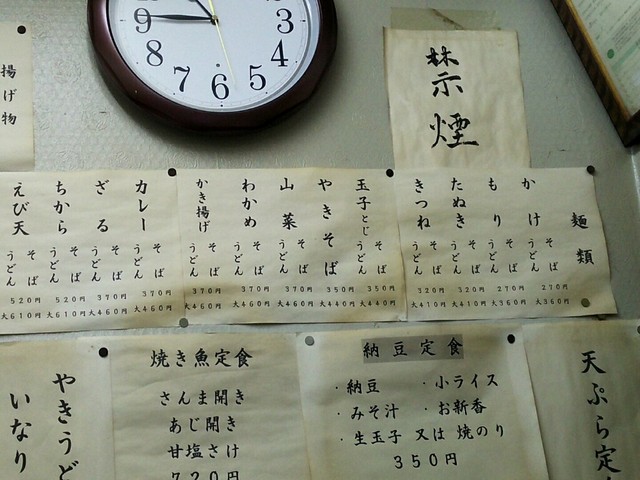 9
8
7
6
5
4
3
禁煙
揚げ物
麺類
かけ そば うどん 270円 大360円
もり そば うどん 270円 大360円
たぬき そば うどん 320円 大410円
きつね そば うどん 320円 大410円
玉子とじ そば うどん 350円 大440円
やきそば 350円 大440円
山菜 そば うどん 370円 大460円
わかめ そば うどん 370円 大460円
かき揚げ そば うどん 370円 大460円
カレー そば うどん 370円 大460円
ざる そば うどん 370円 大460円
ちから そば うどん 520円 大610円
えび天 そば うどん 520円 大610円
天ぷら定
納豆定食
・納豆 ・小ライス
・みそ汁 ・お新香
・生玉子 又は 焼のり
350円
焼き魚定食
さんま開き
あじ開き
甘塩さけ
720円
やきうど
いなり